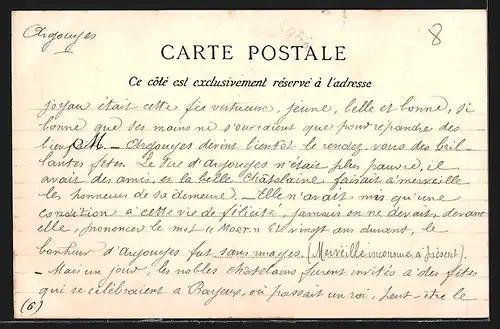 Argouges
8
CARTE POSTALE
Ce côté est exclusivement réservé à l'adresse
joyau était cette fée vertueuse, jeune, belle et bonne, si
bonne que ses mains ne s'ouvraient que pour répandre des
M. — Argouges devint bientôt le rendez vous des bril-
lantes fêtes. Le Sire d'Argouges n'était plus pauvre, il
avait des amis, et la belle Châtelaine faisait à merveille
les honneurs de sa demeure. — Elle n'avait mis qu'une
condition à cette vie de félicité, jamais on ne devait, devant
elle, prononcer le mot "MORT." Et vingt ans durant, le
bonheur d'Argouges fut sans nuages. (Merveille inconnue à présent).
— Mais un jour, les nobles chatelains furent invités à des fêtes
qui se célébraient à Bayeux, où passait un roi, peut-être le
(6)